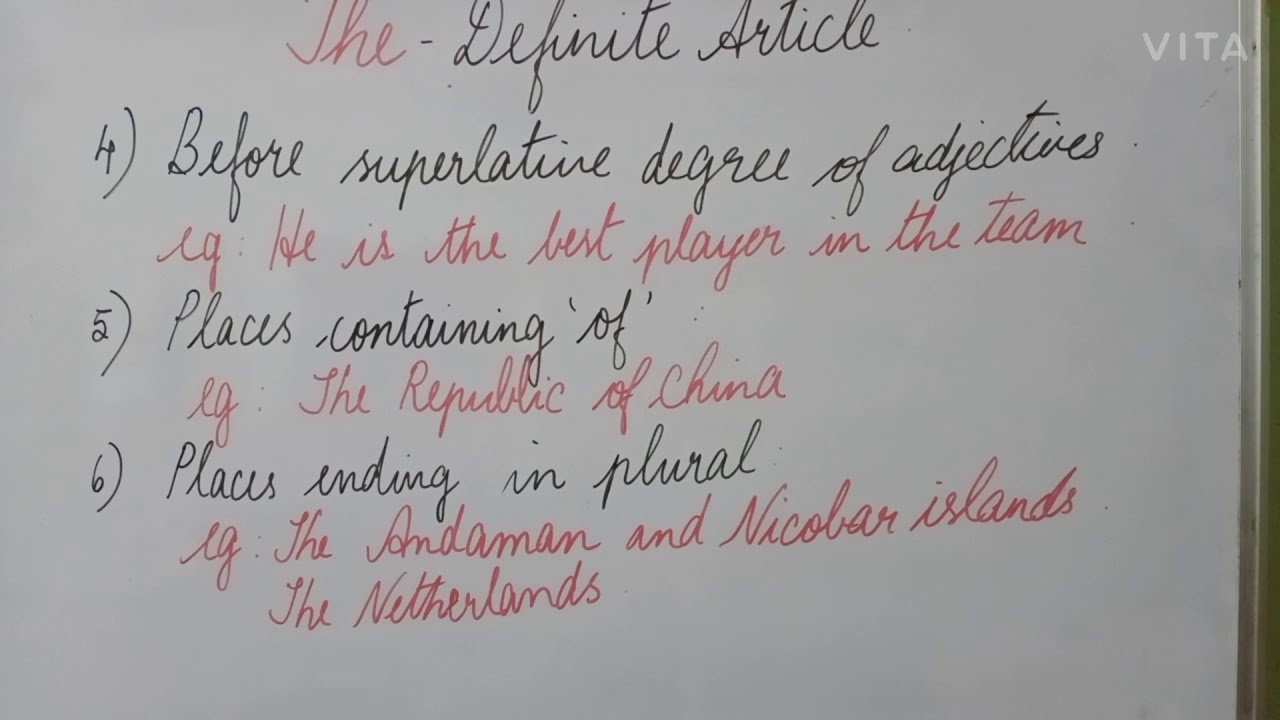 The - Definite Article
VITA
4) Before superlative degree of adjectives.
eg: He is the best player in the team
5) Places containing 'of'
eg: The Republic of China
6) Places ending in plural
eg: The Andaman and Nicobar islands.
The Netherlands